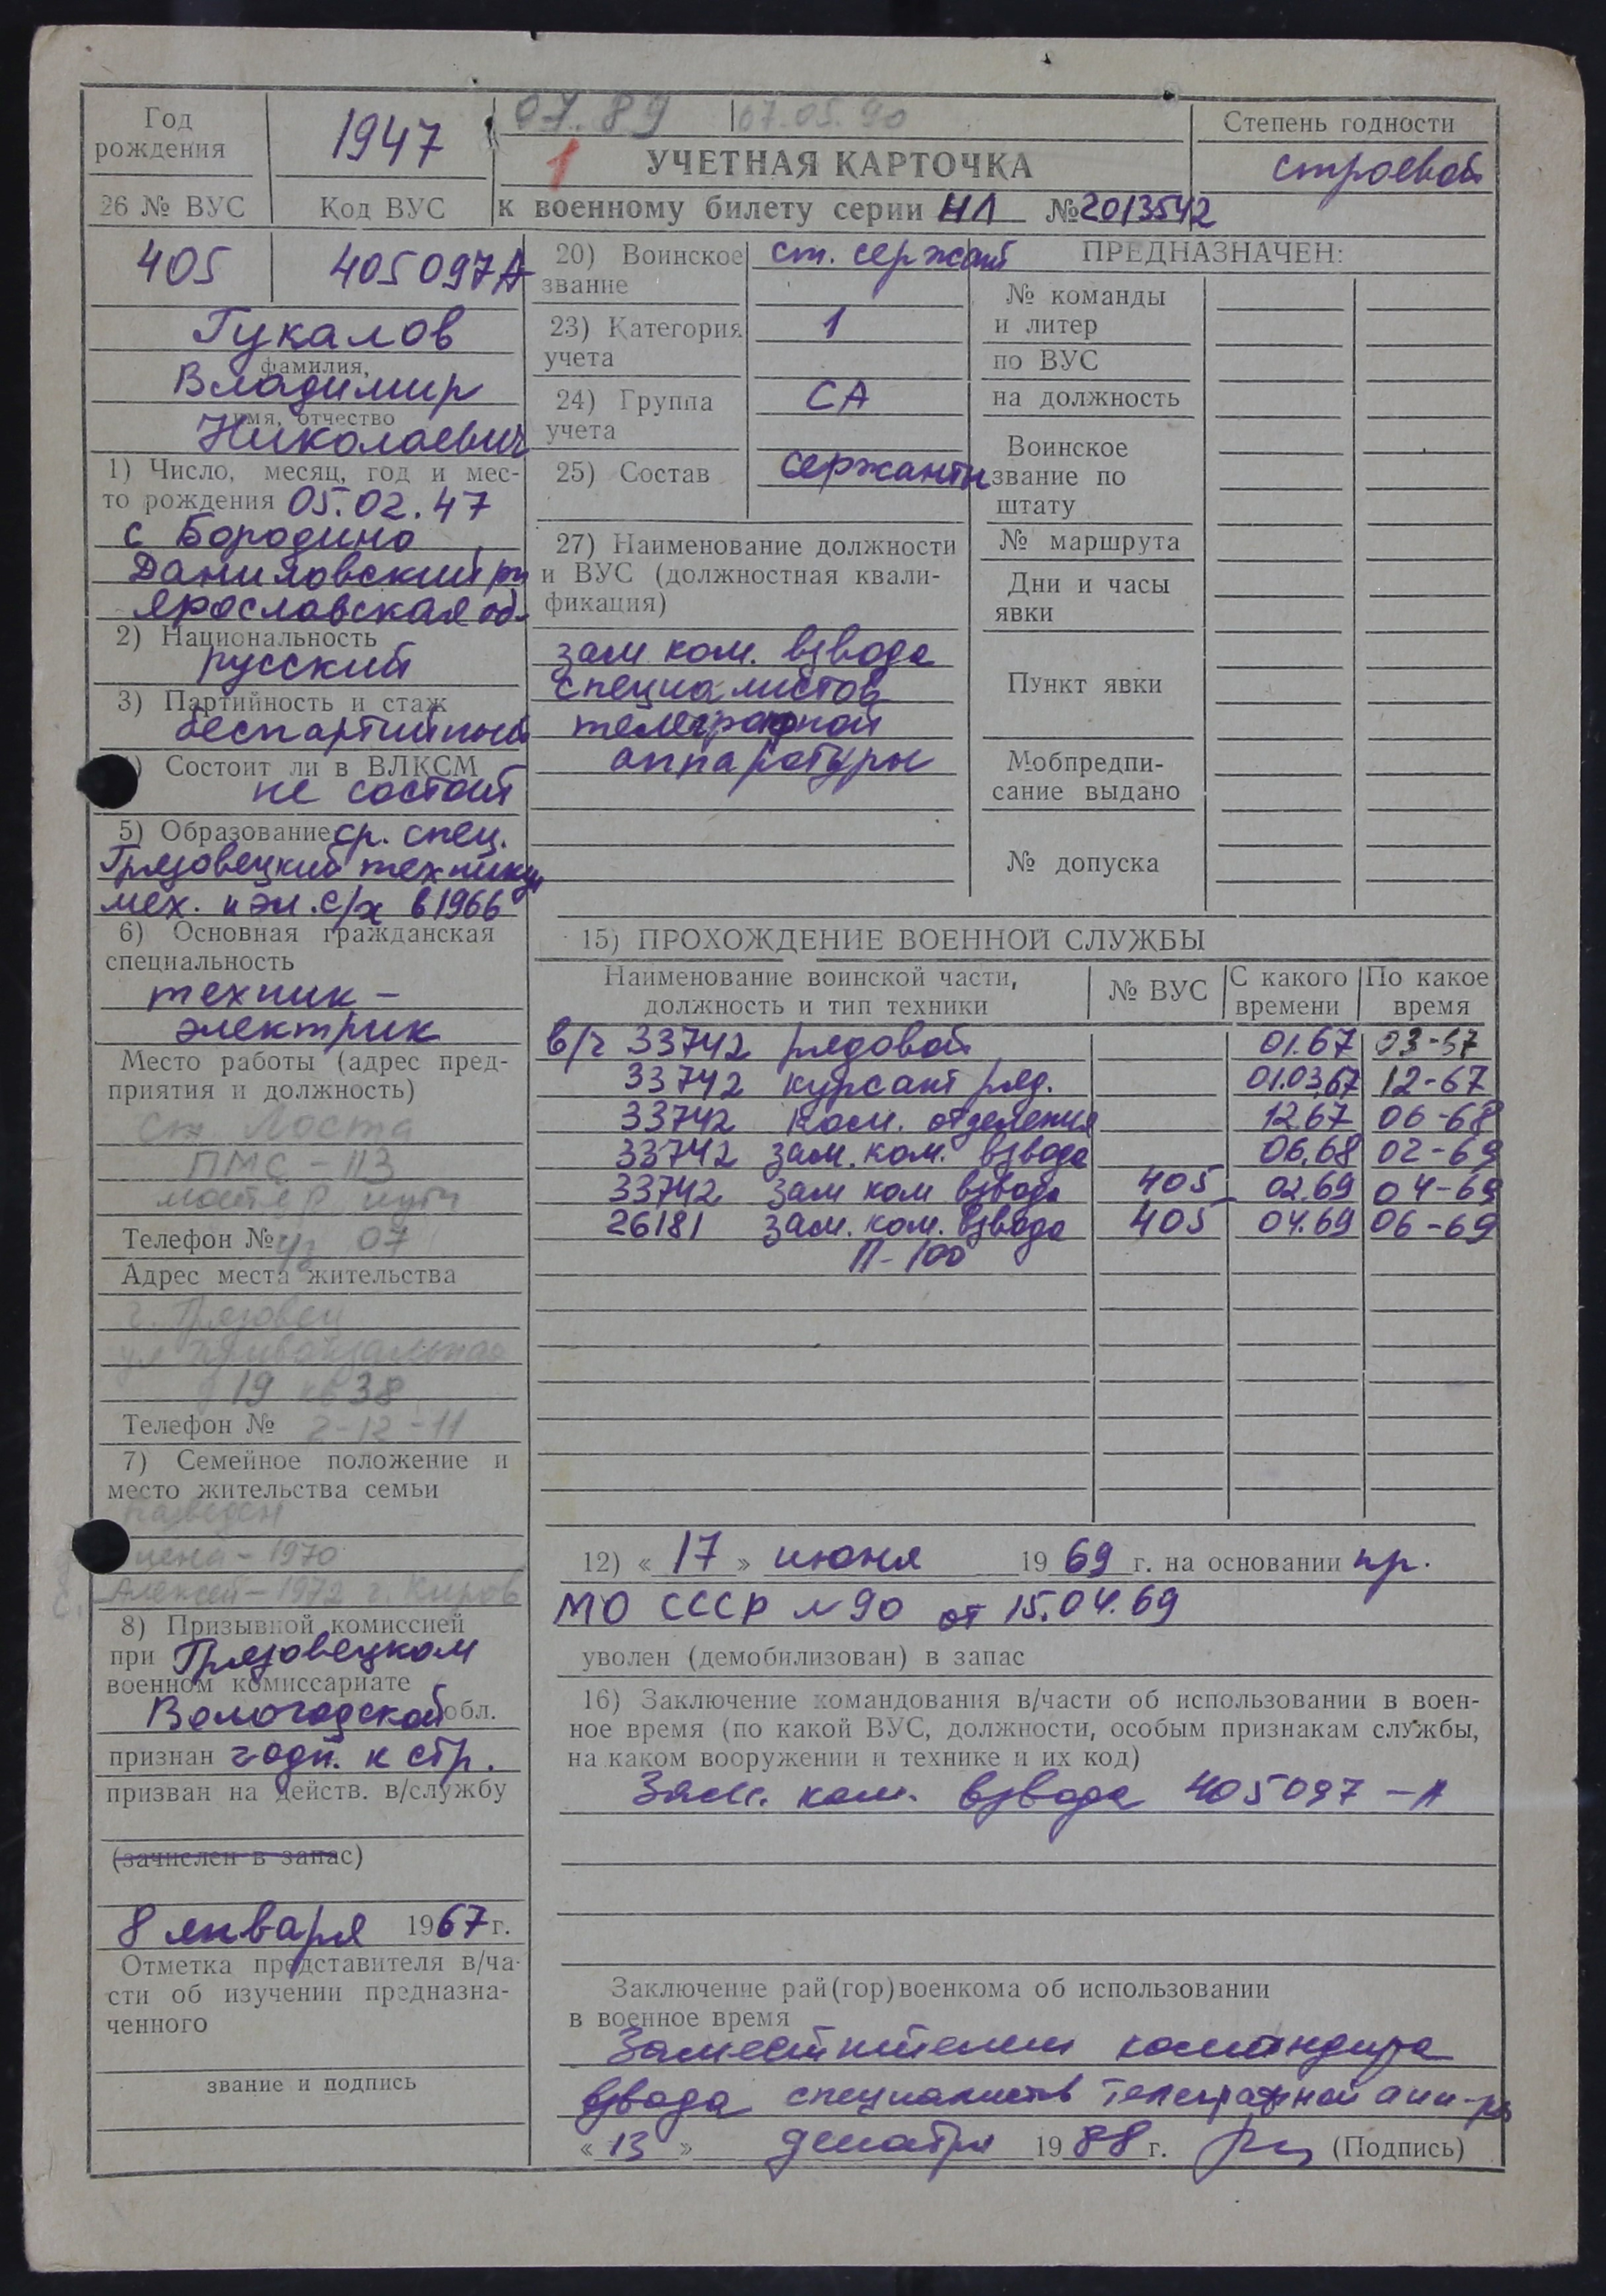 07.89 07.05.90
Год рождения 1947
1 УЧЕТНАЯ КАРТОЧКА
Степень годности
строевой
26 № ВУС Код ВУС
к военному билету серии НЛ №2013542
405 405097А
Гукалов
фамилия,
Владимир
имя, отчество
Николаевич
1) Число, месяц, год и мес-
то рождения 05.02.47
с Бородино
Даниловский рн
Ярославская об.
2) Национальность
русский
3) Партийность и стаж
беспартийный
4) Состоит ли в ВЛКСМ
не состоит
5) Образование ср. спец.
Грязовецкий техникум
мех. и эл. с/х в 1966
6) Основная гражданская
специальность
техник -
электрик
Место работы (адрес пред-
приятия и должность)
ст Лоста
ПМС - 113
мастер пути
Телефон № 07
Адрес места жительства
г. Грязовец
ул Привокзальная
19 кв 38
Телефон № 2-12-11
7) Семейное положение и
место жительства семьи
разведен
- 1970
Алексей - 1972 г. Киров
8) Призывной комиссией
при Грязовецком
военном комиссариате
Вологодской обл.
признан годн. к стр.
призван на действ. в/службу
(зачислен в запас)
8 января 1967 г.
Отметка представителя в/ча-
сти об изучении предназна-
ченного
звание и подпись
20) Воинское звание ст. сержант
23) Категория учета 1
24) Группа учета СА
25) Состав сержанты
27) Наименование должности
и ВУС (должностная квали-
фикация)
зам ком. взвода
специалистов
телеграфной
аппаратуры
ПРЕДНАЗНАЧЕН:
№ команды
и литер
по ВУС
на должность
Воинское
звание по
штату
№ маршрута
Дни и часы
явки
Пункт явки
Мобпредпи-
сание выдано
№ допуска
15) ПРОХОЖДЕНИЕ ВОЕННОЙ СЛУЖБЫ
Наименование воинской части, должность и тип техники № ВУС С какого времени По какое время
в/ч 33742 рядовой 01.67 03-67
33742 курсант ряд. 01.03.67 12-67
33742 ком. отделения 12.67 06-68
33742 зам. ком. взвода 06.68 02-69
33742 зам ком взвода 405 02.69 04-69
26181 зам. ком. взвода 405 04.69 06-69
П-100
12) « 17 » июня 1969 г. на основании пр.
МО СССР №90 от 15.04.69
уволен (демобилизован) в запас
16) Заключение командования в/части об использовании в воен-
ное время (по какой ВУС, должности, особым признакам службы,
на каком вооружении и технике и их код)
Зам. ком. взвода 405097-А
Заключение рай(гор)военкома об использовании
в военное время
Заместителем командира
взвода специалистов телеграфной апп-ры
« 13 » декабря 1988 г. (Подпись)